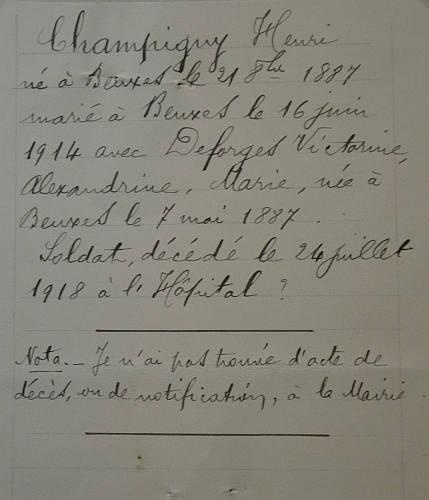 Champigny Henri
né à Beuxes le 21 8bre 1887
marié à Beuxes le 16 juin
1914 avec Deforges Victorine,
Alexandrine, Marie, née à
Beuxes le 7 mai 1887.
Soldat, décédé le 24 juillet
1918 à l'Hôpital ?
Nota.- Je n'ai pas trouvé d'acte de
décès, ou de notification, à la Mairie.